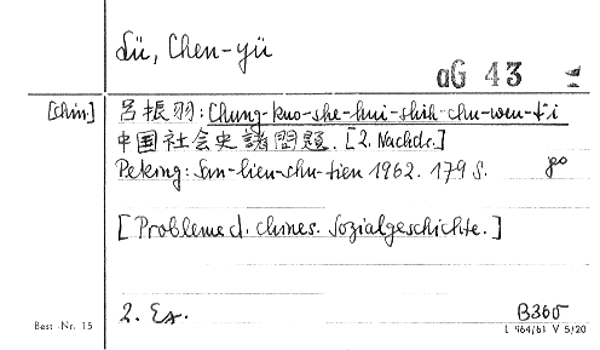 Lü, Chen-yü
aG 43
[chin] 呂振羽: Chung-kuo-she-hui-shih-chu-wen-t'i
中国社会史諸問題. [2. Nachdr.]
Peking: San-lien-shu-tien 1962. 179 S.
[Probleme d. chines. Sozialgeschichte.]
2. Ex.
B365
Best.-Nr. 15
L 964/61 V 5/20